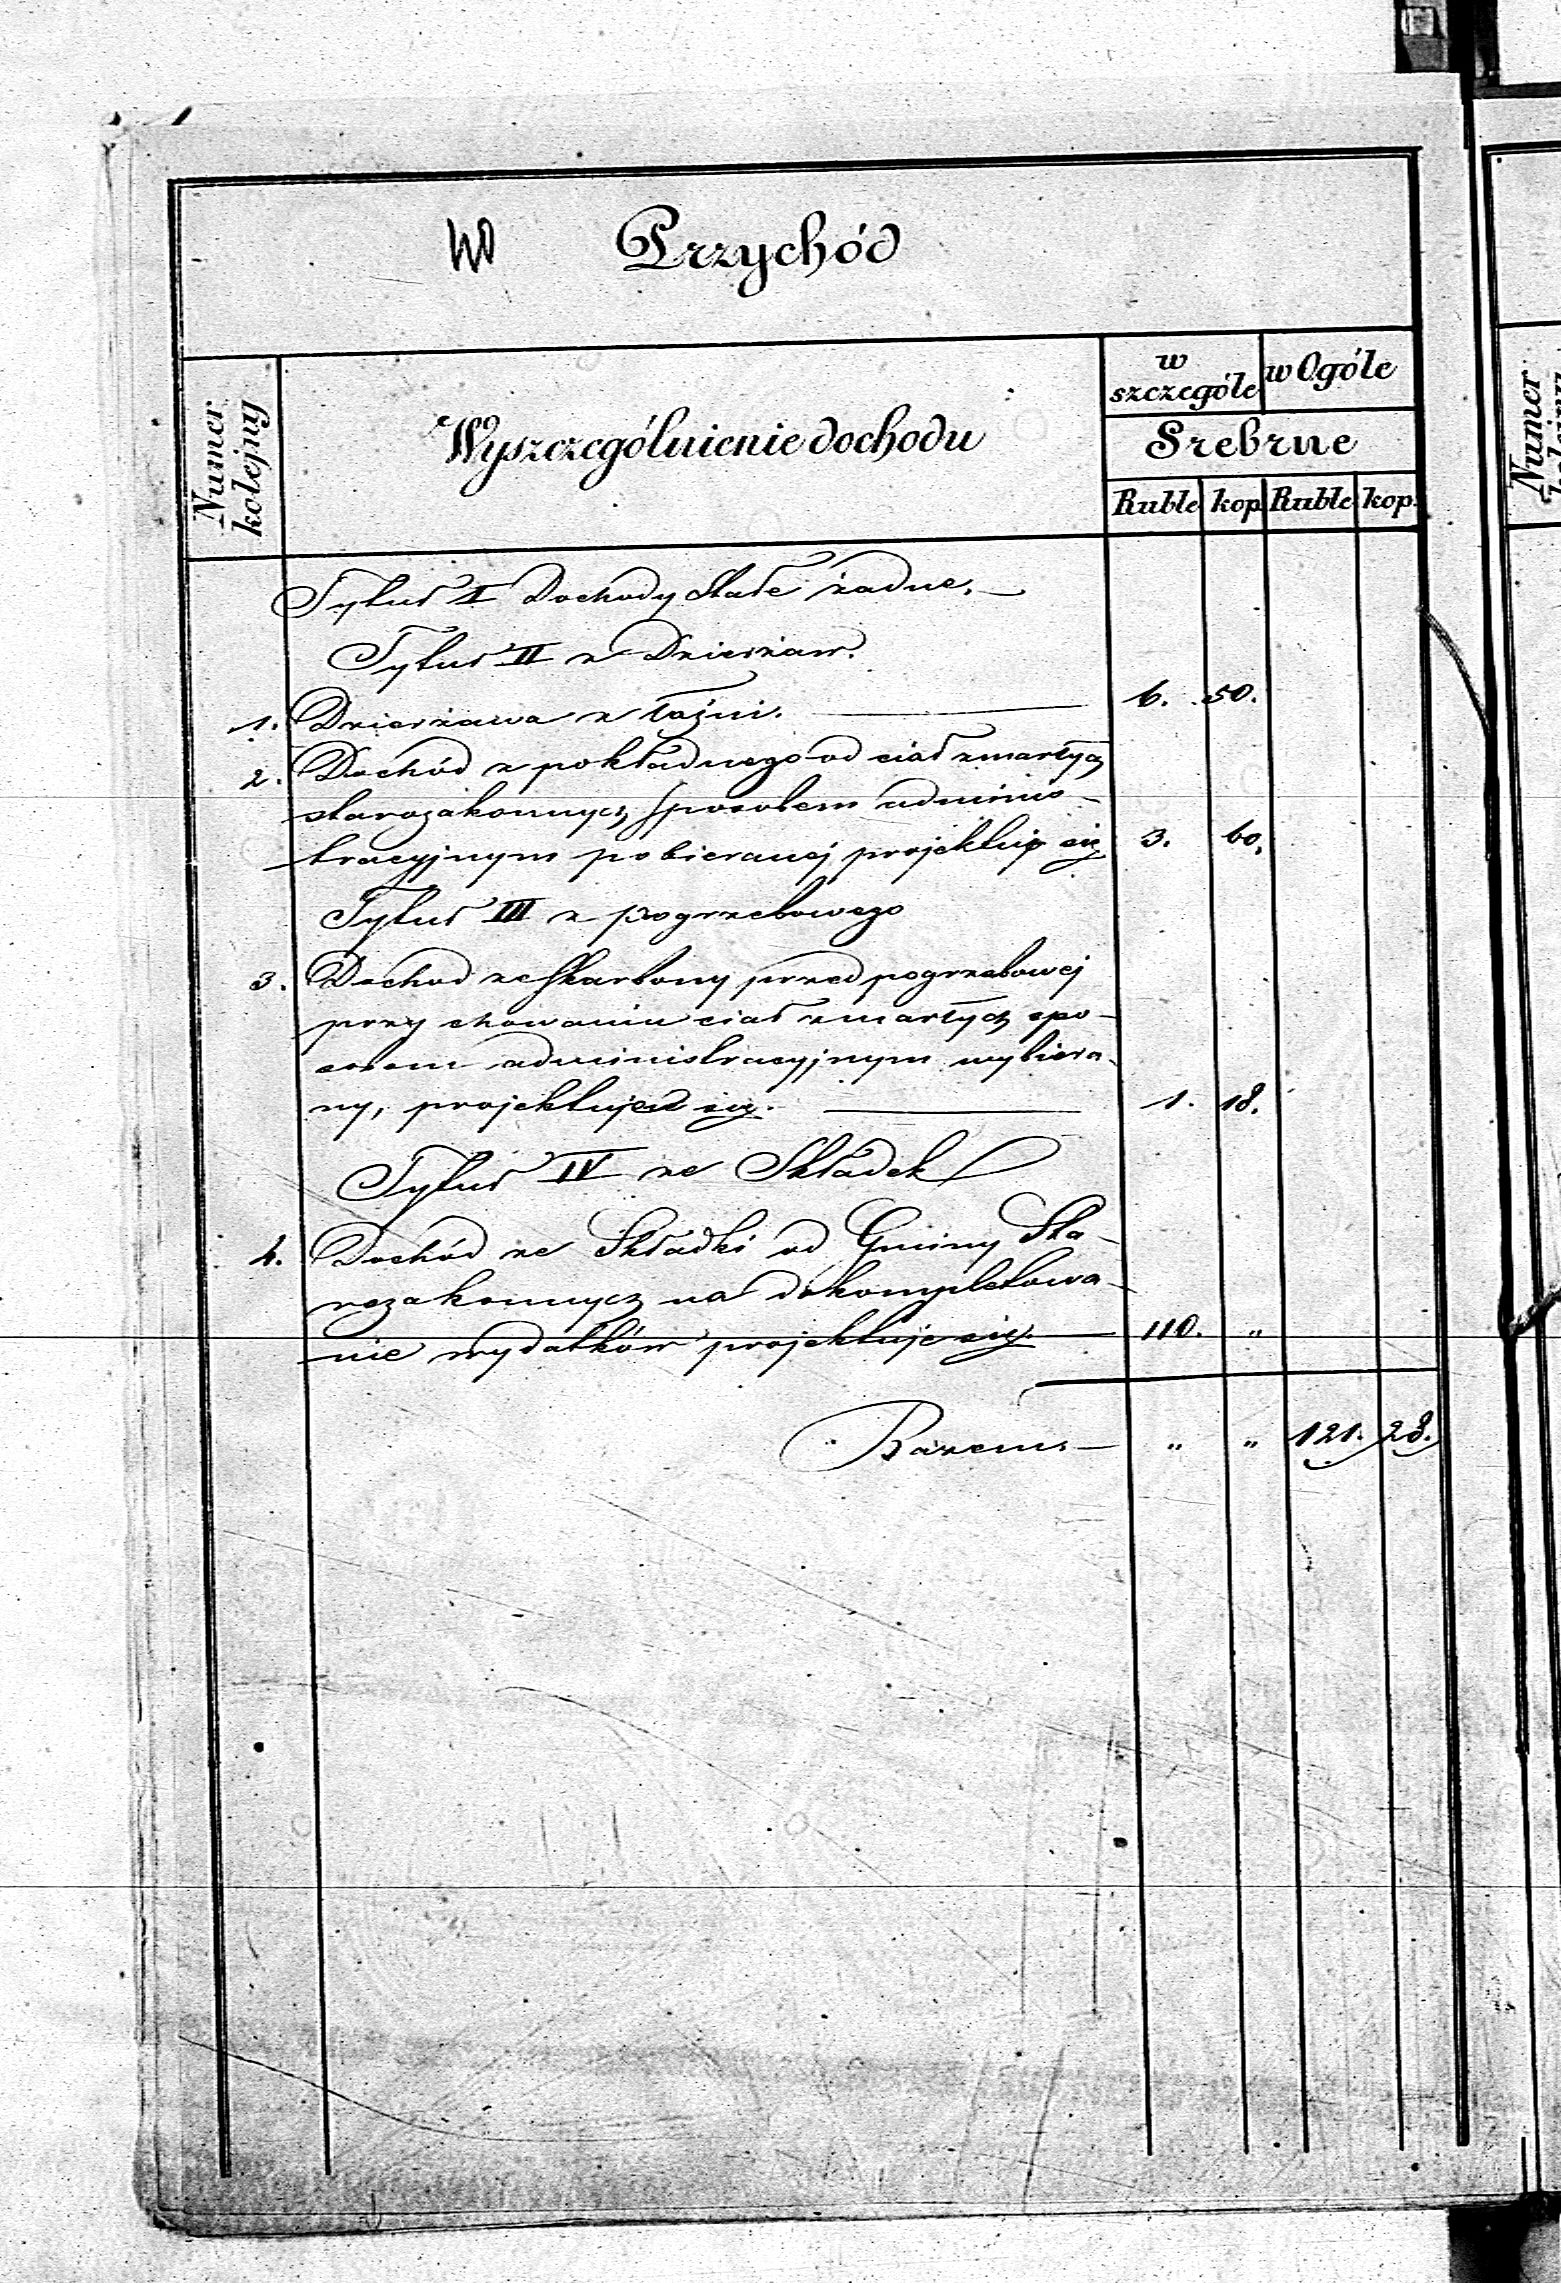 40 Przychód
Numer kolejny
Wyszczególnienie dochodu
w szczególe
w Ogóle
Srebrne
Ruble kop Ruble kop.
Tytuł I Dochody Stałe żadne.
Tytuł II z Dzierżaw.
1. Dzierżawa z łaźni. 6. 50.
2. Dochód z pokładnego od ciał zmarłych
starozakonnych sposobem adminis-
tracyjnym pobieranej projektuje się 3. 60.
Tytuł III z pogrzebowego
3. Dochod ze Skarbony przed pogrzebowej
przy chowaniu ciał zmarłych spo-
sobem administracyjnym wybiera-
ny, projektuje się. 1. 18.
Tytuł IV ze Składek
4. Dochód ze Składki od Gminy Sta-
rozakonnych na dokompletowa-
nie wydatków projektuje się. 110. "
Razem " " 121. 28.
Numer